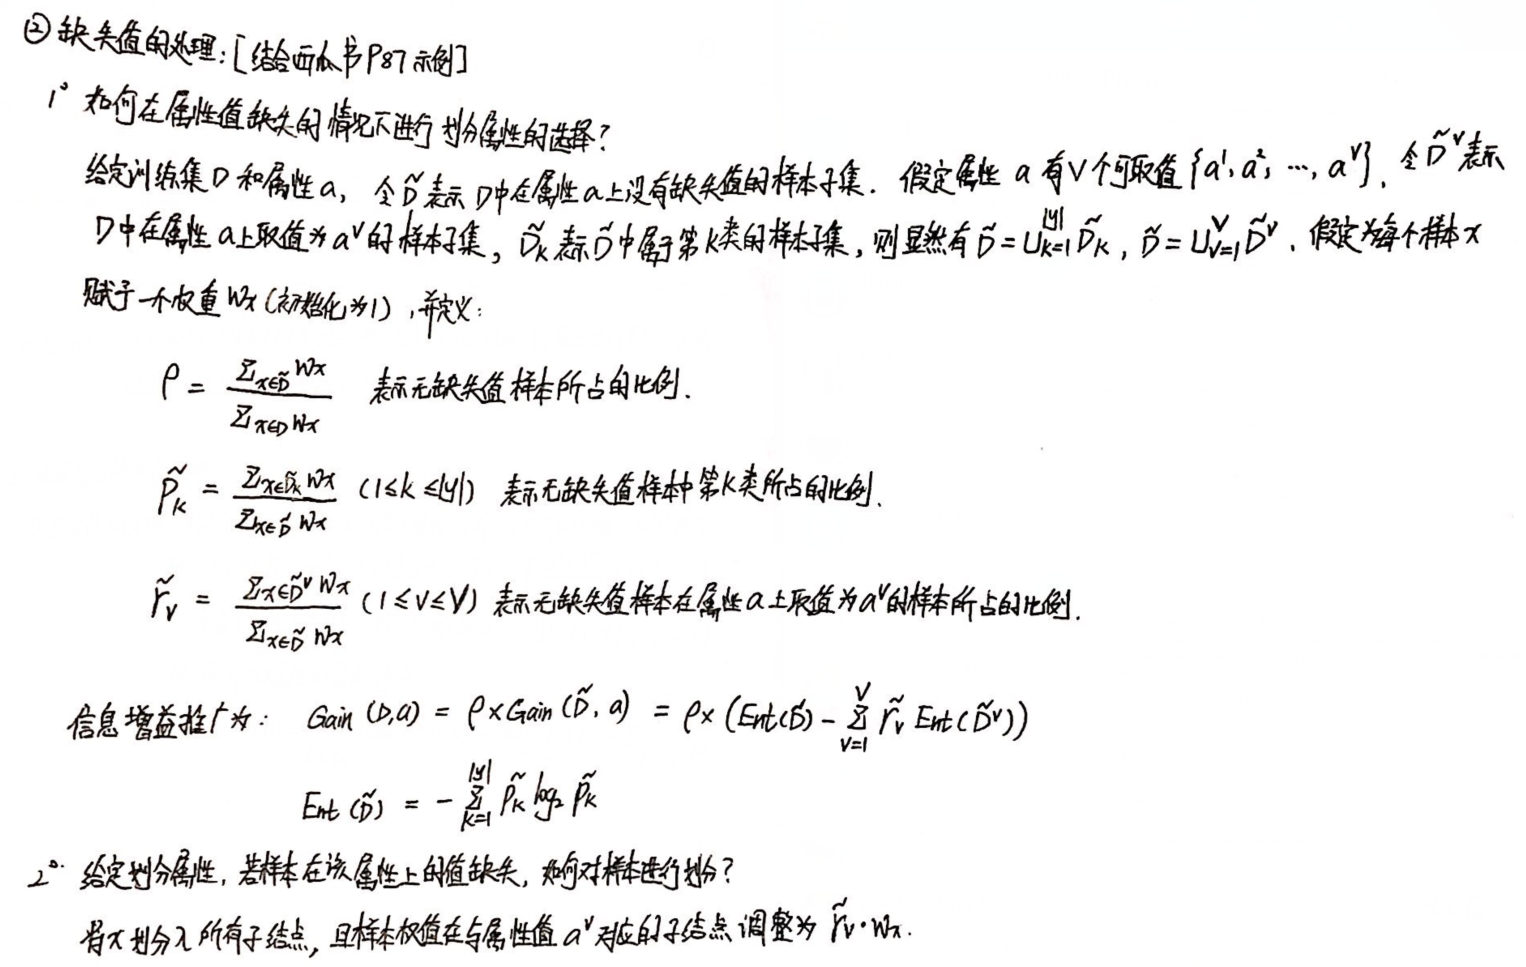 ② 缺失值的处理：[结合西瓜书P87示例]
1° 如何在属性值缺失的情况下进行划分属性的选择？
给定训练集D和属性a，令D̃表示D中在属性a上没有缺失值的样本子集．假定属性a有V个可取值{a¹, a², …, aⱽ}，令D̃ᵛ表示
D中在属性a上取值为aᵛ的样本子集，D̃ₖ表示D̃中属于第k类的样本子集，则显然有D̃ = ∪_{k=1}^{|y|} D̃ₖ，D̃ = ∪_{v=1}^{V} D̃ᵛ．假定为每个样本x
赋予一个权重Wx（初始化为1），并定义：
ρ = \frac{Σ_{x∈D̃} Wx}{Σ_{x∈D} Wx} 表示无缺失值样本所占的比例．
p̃ₖ = \frac{Σ_{x∈D̃ₖ} Wx}{Σ_{x∈D̃} Wx} (1≤k≤|y|) 表示无缺失值样本中第k类所占的比例．
r̃ᵥ = \frac{Σ_{x∈D̃ᵛ} Wx}{Σ_{x∈D̃} Wx} (1≤v≤V) 表示无缺失值样本在属性a上取值为aᵛ的样本所占的比例．
信息增益推广为： Gain(D,a) = ρ×Gain(D̃, a) = ρ×(Ent(D̃) - Σ_{v=1}^{V} r̃ᵥ Ent(D̃ᵛ))
Ent(D̃) = -Σ_{k=1}^{|y|} p̃ₖ log₂ p̃ₖ
2° 给定划分属性，若样本在该属性上的值缺失，如何对样本进行划分？
将x划分入所有子结点，且样本权值在与属性值aᵛ对应的子结点调整为 r̃ᵥ·Wx．